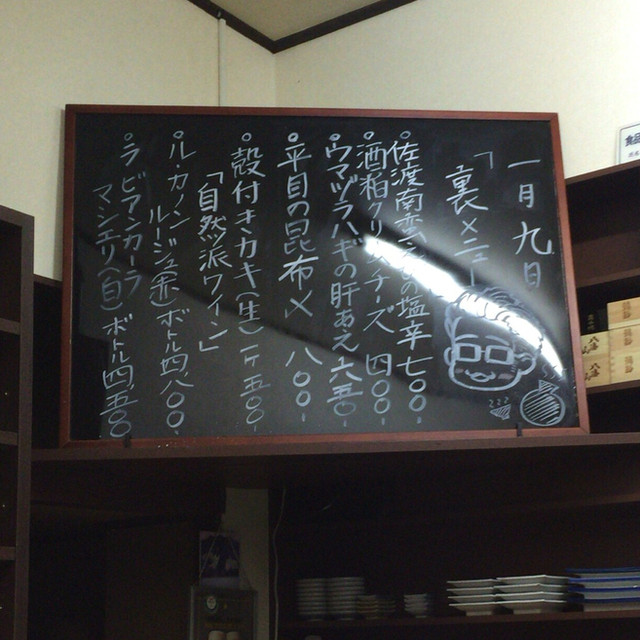 一月九日
「裏メニュー
佐渡南蛮の塩辛 七〇〇-
酒粕クリームチーズ 四〇〇-
ウマヅラハギの肝あえ 六五〇-
平目の昆布〆 八〇〇-
殻付きカキ(生) 一ケ 五〇〇-
「自然派ワイン」
ル・カノン
ルージュ(赤) ボトル 四,八〇〇
ラビアンカーラ
マシエリ(白) ボトル 四,五〇〇